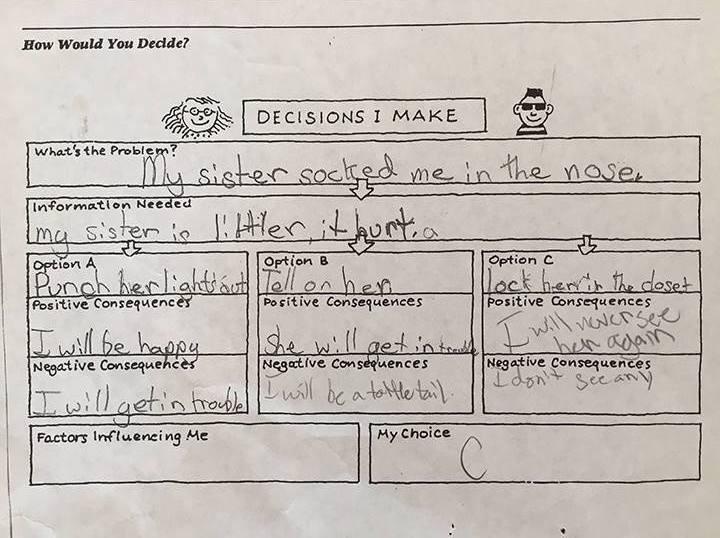 How Would You Decide?
DECISIONS I MAKE
What's the Problem?
My sister socked me in the nose.
Information Needed
my sister is littler, it hurt. a
Option A
Punch her lights out
Positive Consequences
I will be happy
Negative Consequences
I will get in trouble
Option B
Tell on her
Positive Consequences
She will get in trouble
Negative Consequences
I will be a tattletail.
Option C
lock herr in the closet
Positive Consequences
I will never see
her again
Negative Consequences
I don't see any
Factors Influencing Me
My Choice
C